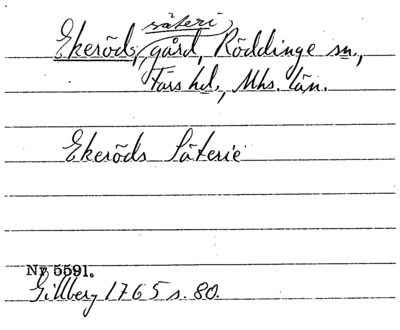 säteri
Ekeröds, gård, Röddinge sn.,
Färs hd., Mhs. län.
Ekeröds Säterie
Nr 5591.
Gillberg 1765 s. 80.